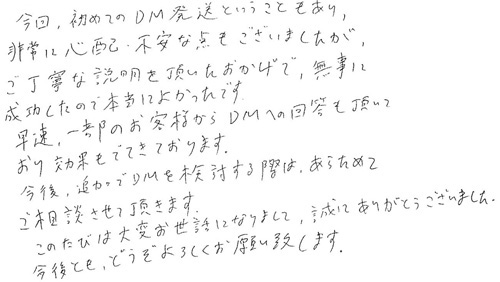 今回、初めてのDM発送ということもあり、
非常に心配・不安な点もございましたが、
ご丁寧な説明を頂いたおかげで、無事に
成功したので本当によかったです。
早速、一部のお客様からDMへの回答も頂いて
おり効果もでてきております。
今後、追加でDMを検討する際は、あらためて
ご相談させて頂きます。
このたびは大変お世話になりまして、誠にありがとうございました。
今後とも、どうぞよろしくお願い致します。